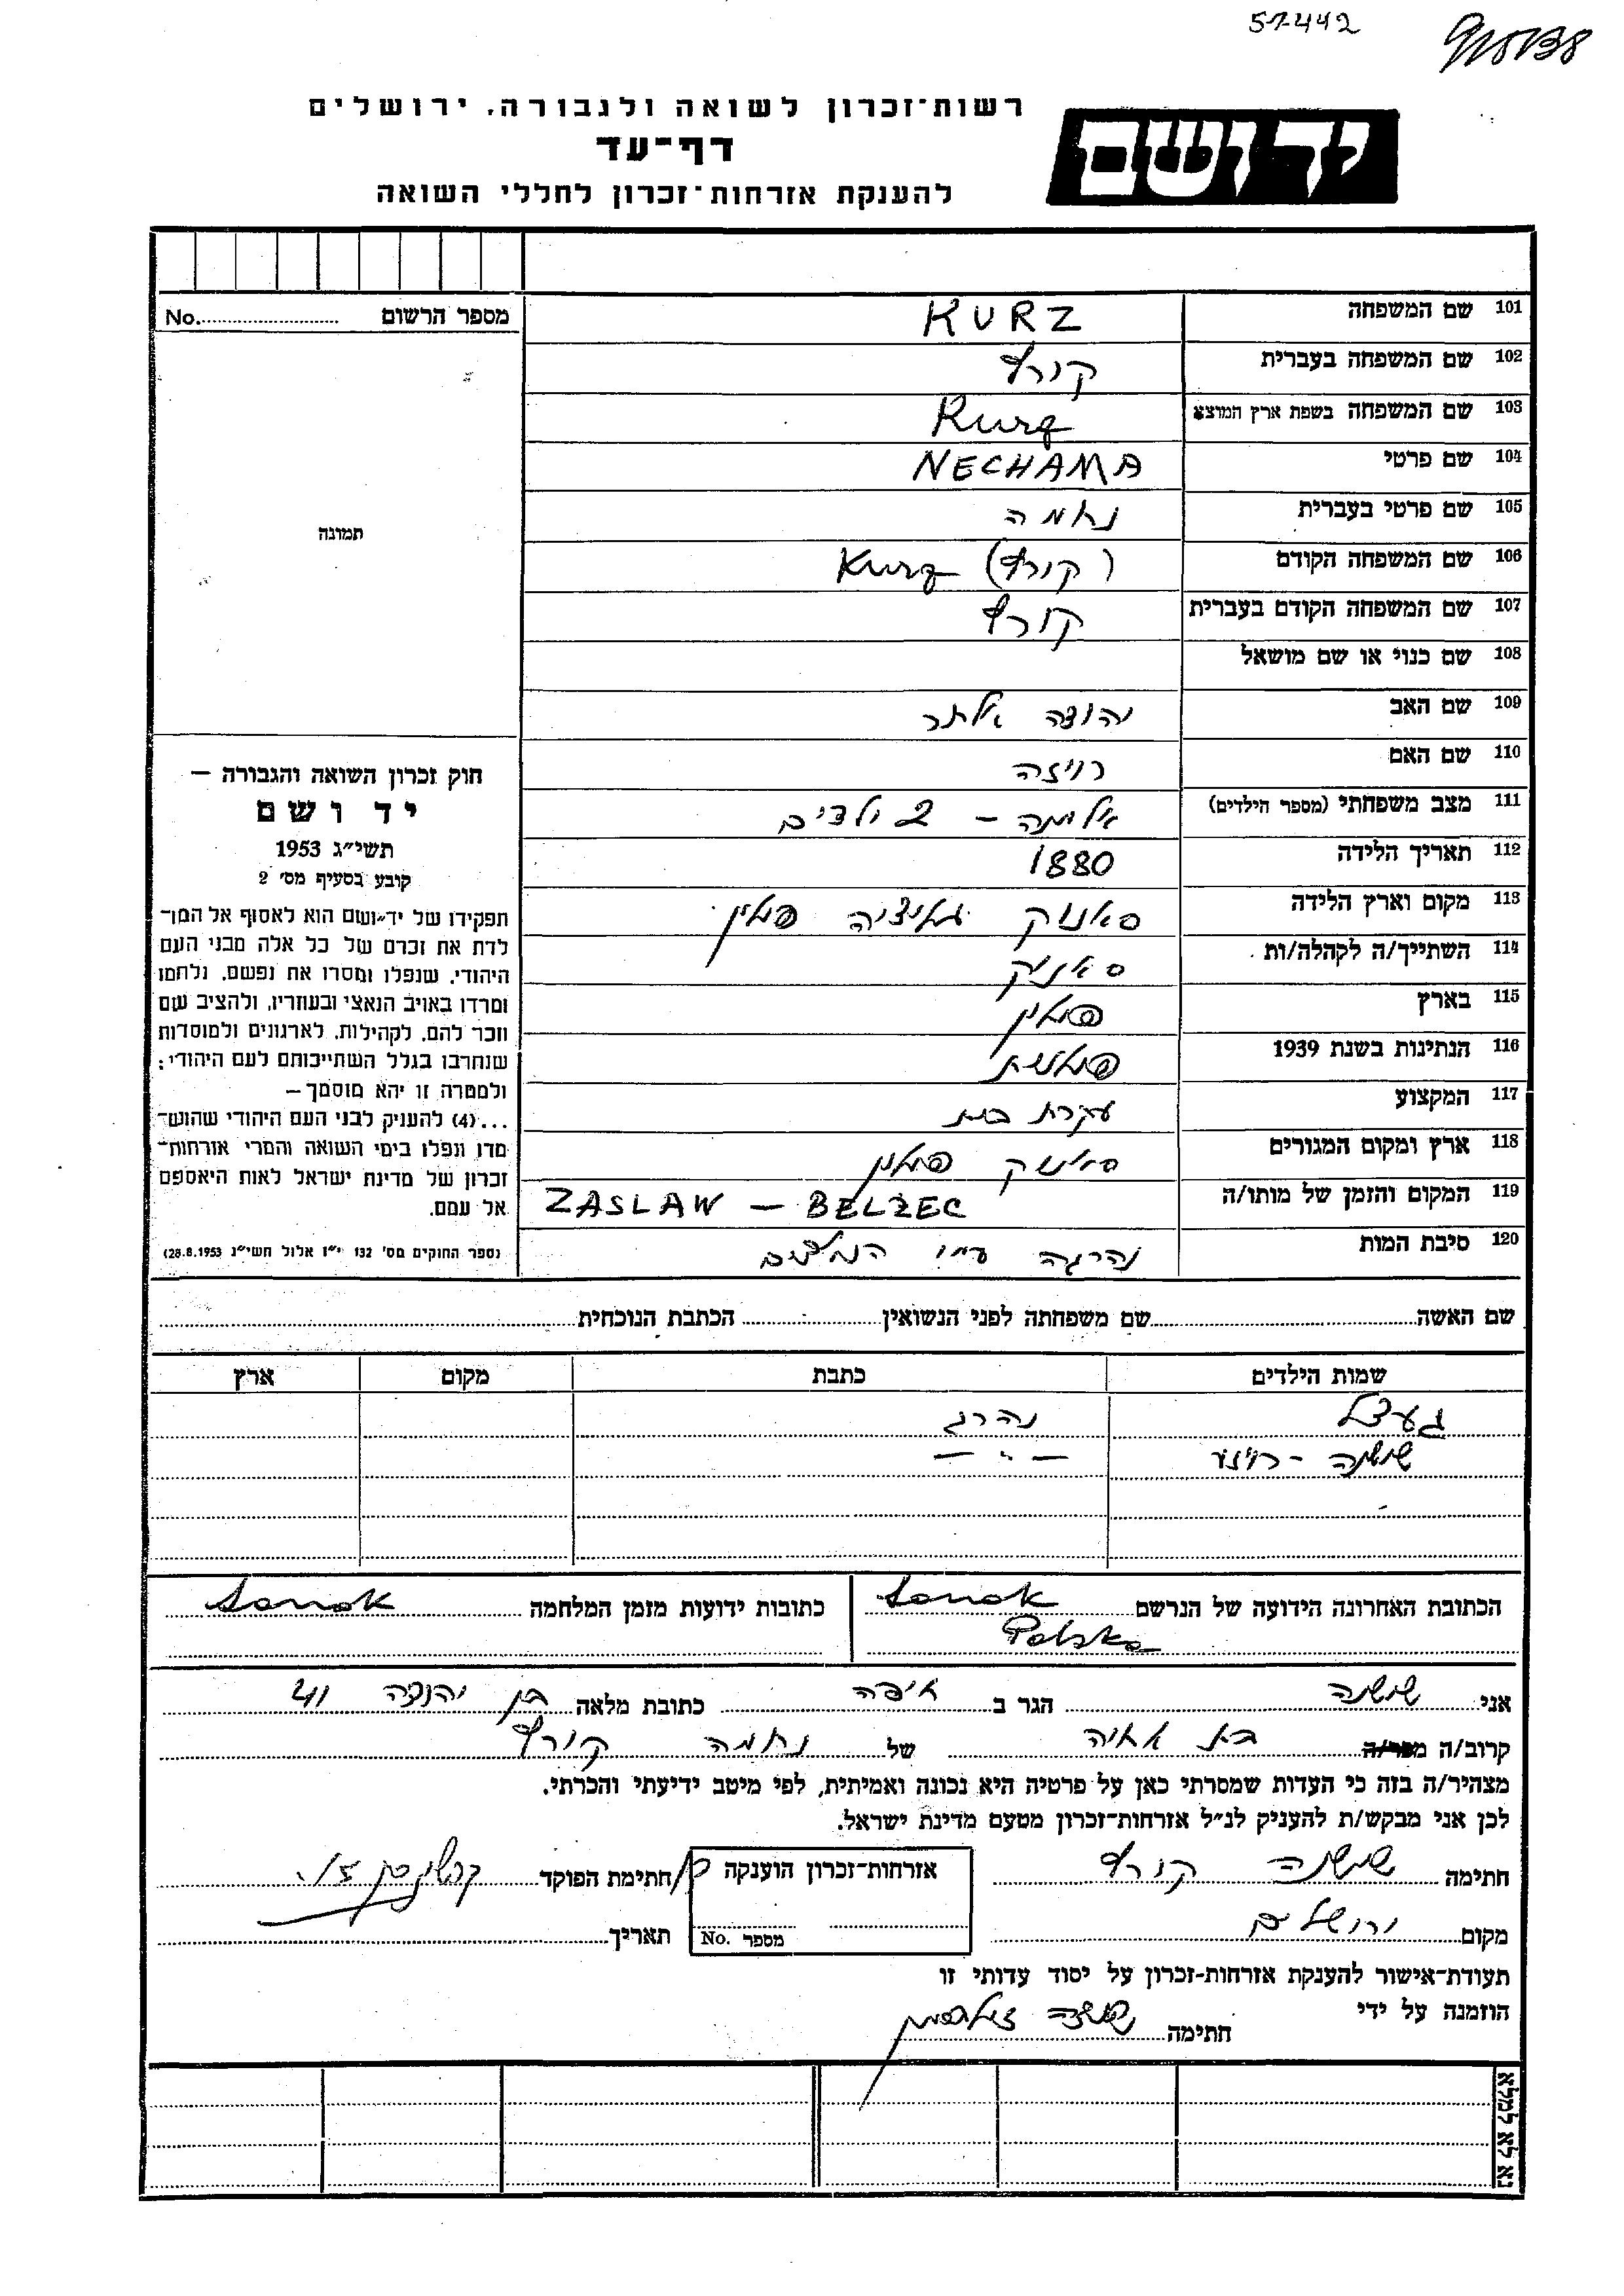 51442
יד ושם
רשות־זכרון לשואה ולגבורה, ירושלים
דף־עד
להענקת אזרחות־זכרון לחללי השואה
מספר הרשום No.
תמונה
101 שם המשפחה KURZ
102 שם המשפחה בעברית קורץ
103 שם המשפחה בשפת ארץ המוצא Kurz
104 שם פרטי NECHAMA
105 שם פרטי בעברית נחמה
106 שם המשפחה הקודם (קורץ) Kurz
107 שם המשפחה הקודם בעברית קורץ
108 שם כנוי או שם מושאל
109 שם האב יהודה אלתר
110 שם האם רויזה
111 מצב משפחתי (מספר הילדים) אלמנה – 2 ילדים
112 תאריך הלידה 1880
113 מקום וארץ הלידה סאנוק גליציה פולין
114 השתייך/ה לקהלה/ות סאנוק
115 בארץ פולין
116 הנתינות בשנת 1939 פולנית
117 המקצוע עקרת בית
118 ארץ ומקום המגורים סאנוק פולין
119 המקום והזמן של מותו/ה ZASLAW – BELZEC
120 סיבת המות נהרגה ע״י הנאצים
חוק זכרון השואה והגבורה –
יד ושם
תשי״ג 1953
קובע בסעיף מס׳ 2
תפקידו של יד־ושם הוא לאסוף אל המו־
לדת את זכרם של כל אלה מבני העם
היהודי, שנפלו ומסרו את נפשם, נלחמו
ומרדו באויב הנאצי ובעוזריו, ולהציב שם
וזכר להם, לקהילות, לארגונים ולמוסדות
שנחרבו בגלל השתייכותם לעם היהודי;
ולמטרה זו יהא מוסמך –
...(4) להעניק לבני העם היהודי שהוש־
מדו ונפלו בימי השואה והמרי אזרחות־
זכרון של מדינת ישראל לאות היאספם
אל עמם.
(ספר החוקים מס׳ 132 י״ז אלול תשי״ג 28.8.1953)
שם האשה שם משפחתה לפני הנשואין הכתבת הנוכחית
שמות הילדים כתבת מקום ארץ
געצל נהרג
שושנה - רויזי – " –
הכתובת האחרונה הידועה של הנרשם Sanok
Polska
כתובות ידועות מזמן המלחמה Sanok
אני שושנה הגר ב חיפה כתובת מלאה בן יהודה 41
קרוב/ה מפר/ה בת אחיה של נחמה קורץ
מצהיר/ה בזה כי העדות שמסרתי כאן על פרטיה היא נכונה ואמיתית, לפי מיטב ידיעתי והכרתי.
לכן אני מבקש/ת להעניק לנ״ל אזרחות־זכרון מטעם מדינת ישראל.
חתימה שושנה קורץ
אזרחות־זכרון הוענקה
חתימת הפוקד
מקום ירושלים
מספר No.
תאריך
תעודת־אישור להענקת אזרחות־זכרון על יסוד עדותי זו
הוזמנה על ידי
חתימה
נא לא למלא